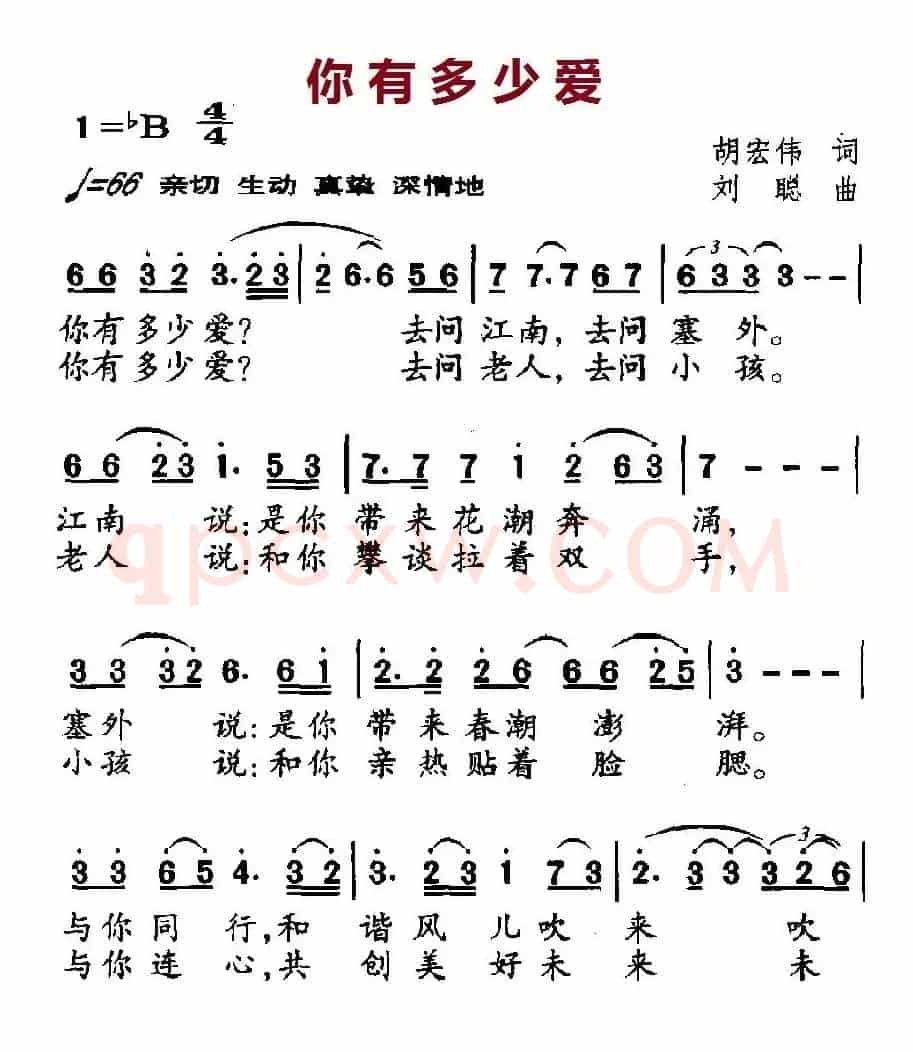 你有多少爱
1=♭B 4/4
胡宏伟 词
♩=66 亲切 生动 真挚 深情地
刘 聪 曲
6 6 3 2 3. 2 3 | 2 6. 6 5 6 | 7 7. 7 6 7 | 6 3 3 3 - - |
你有多少爱? 去问江南,去问塞 外。
你有多少爱? 去问老人,去问小 孩。
6 6 2 3 1. 5 3 | 7. 7 7 1 2 6 3 | 7 - - - |
江南 说:是你 带来花潮奔 涌,
老人 说:和你 攀谈拉着双 手,
qpcxw.COM
3 3 3 2 6. 6 1 | 2. 2 2 6 6 6 2 5 | 3 - - - |
塞外 说:是你 带来春潮 澎 湃。
小孩 说:和你 亲热贴着 脸 腮。
3 3 6 5 4. 3 2 | 3. 2 3 1 7 3 | 2. 3 3 3 2 6 |
与你同 行,和 谐风 儿吹 来 吹
与你连 心,共 创美 好未 来 未